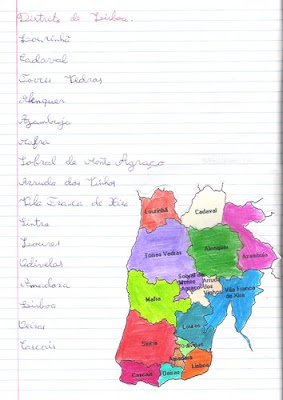 Distrito de Lisboa:
Lourinhã
Cadaval
Torres Vedras
Alenquer
Azambuja
Mafra
Sobral de Monte Agraço
Arruda dos Vinhos
Vila Franca de Xira
Sintra
Loures
Odivelas
Amadora
Lisboa
Oeiras
Cascais
Lourinhã
Cadaval
Torres Vedras
Alenquer
Azambuja
Sobral de
Monte
Agraço
Arruda
dos
Vinhos
Vila Franca
de Xira
Mafra
Loures
Sintra
Odivelas
Amadora
Lisboa
Cascais
Oeiras